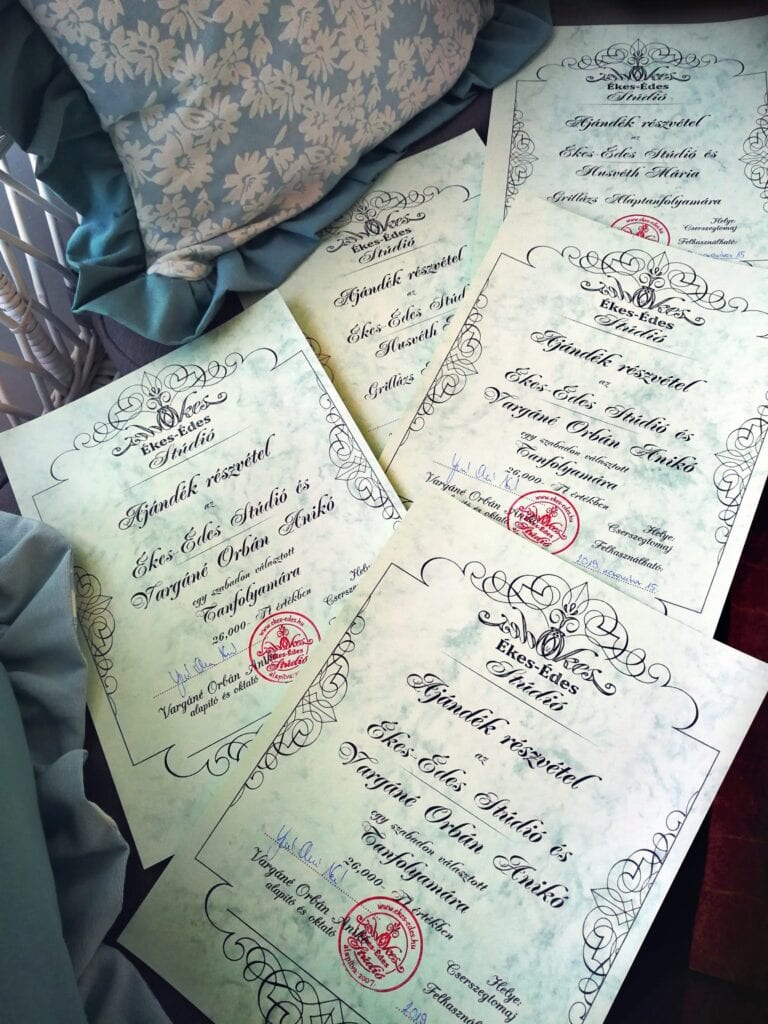 Ékes-Édes
Stúdió
Ajándék részvétel
az
Ékes-Édes Stúdió és
Husvéth Mária
Grillázs Alaptanfolyamára
www.ekes-edes.hu
Helye:
Cserszegtomaj
Felhasználható:
15
Ékes-Édes
Stúdió
Ajándék részvétel
az
Ékes-Édes Stúd
Husvéth
Grillázs
Ékes-Édes
Stúdió
Ajándék részvétel
az
Ékes-Édes Stúdió és
Vargáné Orbán Anikó
egy szabadon választott
Tanfolyamára
26,000- Ft értékben
Vargáné Orbán
alapító és oktató
www.ekes-edes.hu
Helye:
Cserszegtomaj
Felhasználható:
2019 november 15
Ékes-Édes
Stúdió
Ajándék részvétel
az
Ékes-Édes Stúdió és
Vargáné Orbán Anikó
egy szabadon választott
Tanfolyamára
26,000- Ft értékben
Vargáné Orbán Anikó
alapító és oktató
www.ekes-edes.hu
Ékes-Édes
Stúdió
alapítva 2007.
Ékes-Édes
Stúdió
Ajándék részvétel
az
Ékes-Édes Stúdió és
Vargáné Orbán Anikó
egy szabadon választott
Tanfolyamára
26,000- Ft értékben
Vargáné Orbán Anikó
alapító és oktató
www.ekes-edes.hu
Ékes-Édes
Stúdió
alapítva 2007.
Helye:
Cserszegtomaj
Felhasználható:
2019